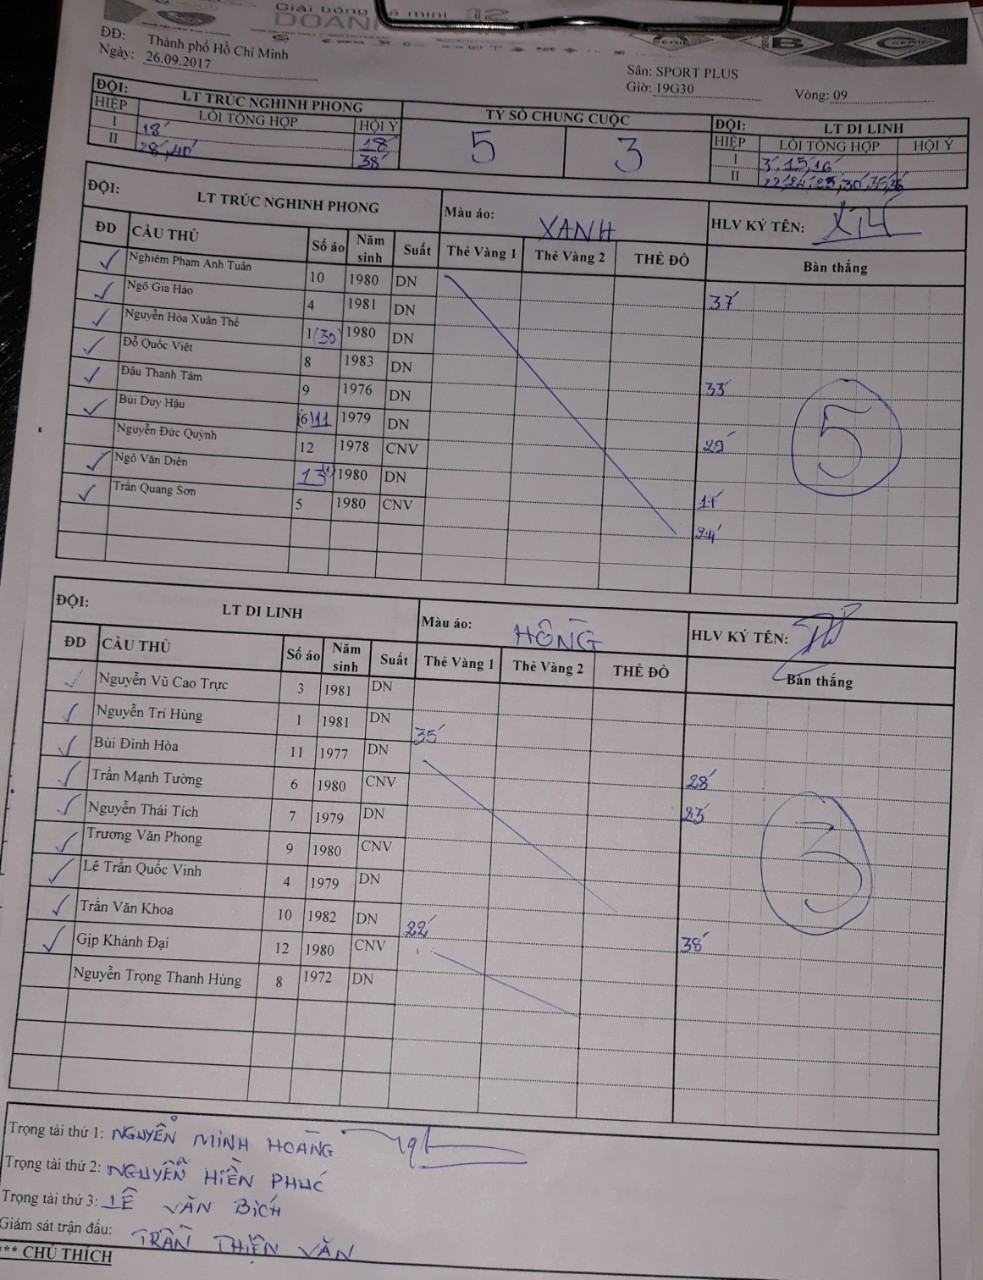 Giải bóng đá mini 12
DOANH
ĐĐ: Thành phố Hồ Chí Minh
Ngày: 26.09.2017
Sân: SPORT PLUS
Giờ: 19G30 Vòng: 09
ĐỘI: LT TRÚC NGHINH PHONG TỶ SỐ CHUNG CUỘC ĐỘI: LT DI LINH
HIỆP LỖI TỔNG HỢP HỘI Ý HIỆP LỖI TỔNG HỢP HỘI Ý
I 18' 18' 5 3 I 3', 15, 16'
II 28', 40' 38' II
ĐỘI: LT TRÚC NGHINH PHONG Màu áo: XANH HLV KÝ TÊN:
ĐD CẦU THỦ Số áo Năm sinh Suất Thẻ Vàng 1 Thẻ Vàng 2 THẺ ĐỎ Bàn thắng
Nghiêm Phạm Anh Tuấn 10 1980 DN 37'
Ngô Gia Hào 4 1981 DN
Nguyễn Hòa Xuân Thế 1 (30) 1980 DN
Đỗ Quốc Việt 8 1983 DN 33'
Đậu Thanh Tâm 9 1976 DN
Bùi Duy Hậu (6) 11 1979 DN
Nguyễn Đức Quỳnh 12 1978 CNV
Ngô Văn Diễn 13 1980 DN
Trần Quang Sơn 5 1980 CNV 24'
5
ĐỘI: LT DI LINH Màu áo: HỒNG HLV KÝ TÊN:
ĐD CẦU THỦ Số áo Năm sinh Suất Thẻ Vàng 1 Thẻ Vàng 2 THẺ ĐỎ Bàn thắng
Nguyễn Vũ Cao Trực 3 1981 DN
Nguyễn Trí Hùng 1 1981 DN
Bùi Đình Hòa 11 1977 DN 35'
Trần Mạnh Tường 6 1980 CNV 28'
Nguyễn Thái Tích 7 1979 DN 23'
Trương Văn Phong 9 1980 CNV
Lê Trần Quốc Vinh 4 1979 DN
Trần Văn Khoa 10 1982 DN
Gịp Khánh Đại 12 1980 CNV 22' 38'
Nguyễn Trọng Thanh Hùng 8 1972 DN
3
Trọng tài thứ 1: NGUYỄN MINH HOÀNG
Trọng tài thứ 2: NGUYỄN HIỀN PHÚC
Trọng tài thứ 3: LÊ VĂN BÍCH
Giám sát trận đấu: TRẦN THIỆN VĂN
*** CHÚ THÍCH